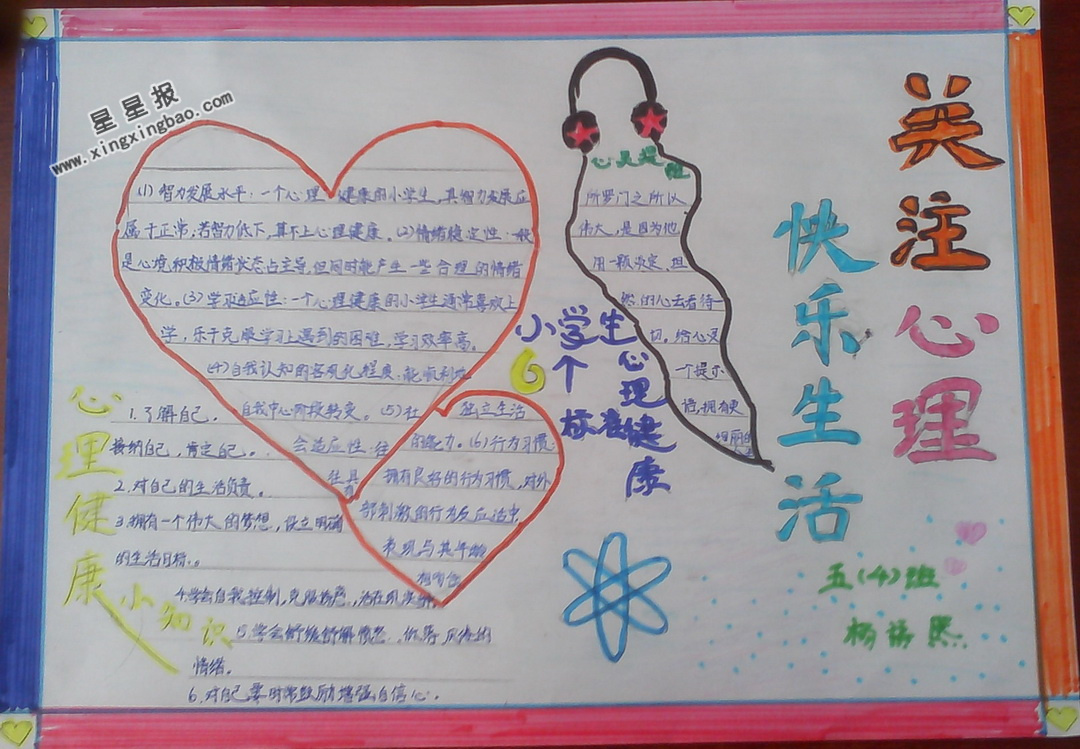 星星报
www.xingxingbao.com
关注心理
快乐生活
五(4)班
心灵提
所罗门之所以
伟大,是因为他
用一颗淡定、坦
然的心去看待一
切。给心灵
一个提示
拥有更
小学生
6个
心理健康
标准
(1)智力发展水平:一个心理健康的小学生,其智力发展应
属于正常,若智力低下,算不上心理健康。(2)情绪稳定性:一般
是心境积极情绪状态占主导,但同时能产生一些合理的情绪
变化。(3)学习适应性:一个心理健康的小学生通常喜欢上
学,乐于克服学习上遇到的困难,学习效率高。
(4)自我认知的客观化程度:能顺利从
自我中心阶段转变。(5)社
会适应性:往
往具有
独立生活
的能力。(6)行为习惯:
拥有良好的行为习惯,对外
部刺激的行为反应适中,
表现与其年龄
相
心理健康小知识
1.了解自己,
接纳自己,肯定自己。
2.对自己的生活负责。
3.拥有一个伟大的梦想,设立明确
的生活目标。
4.学会自我控制,克服
5.学会舒缓 的
情绪。
6.对自己要时常鼓励增强自信心。